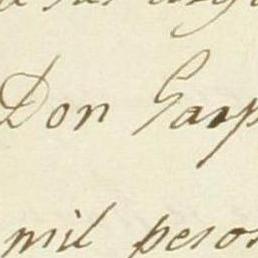 Don Gasp
mil pesos